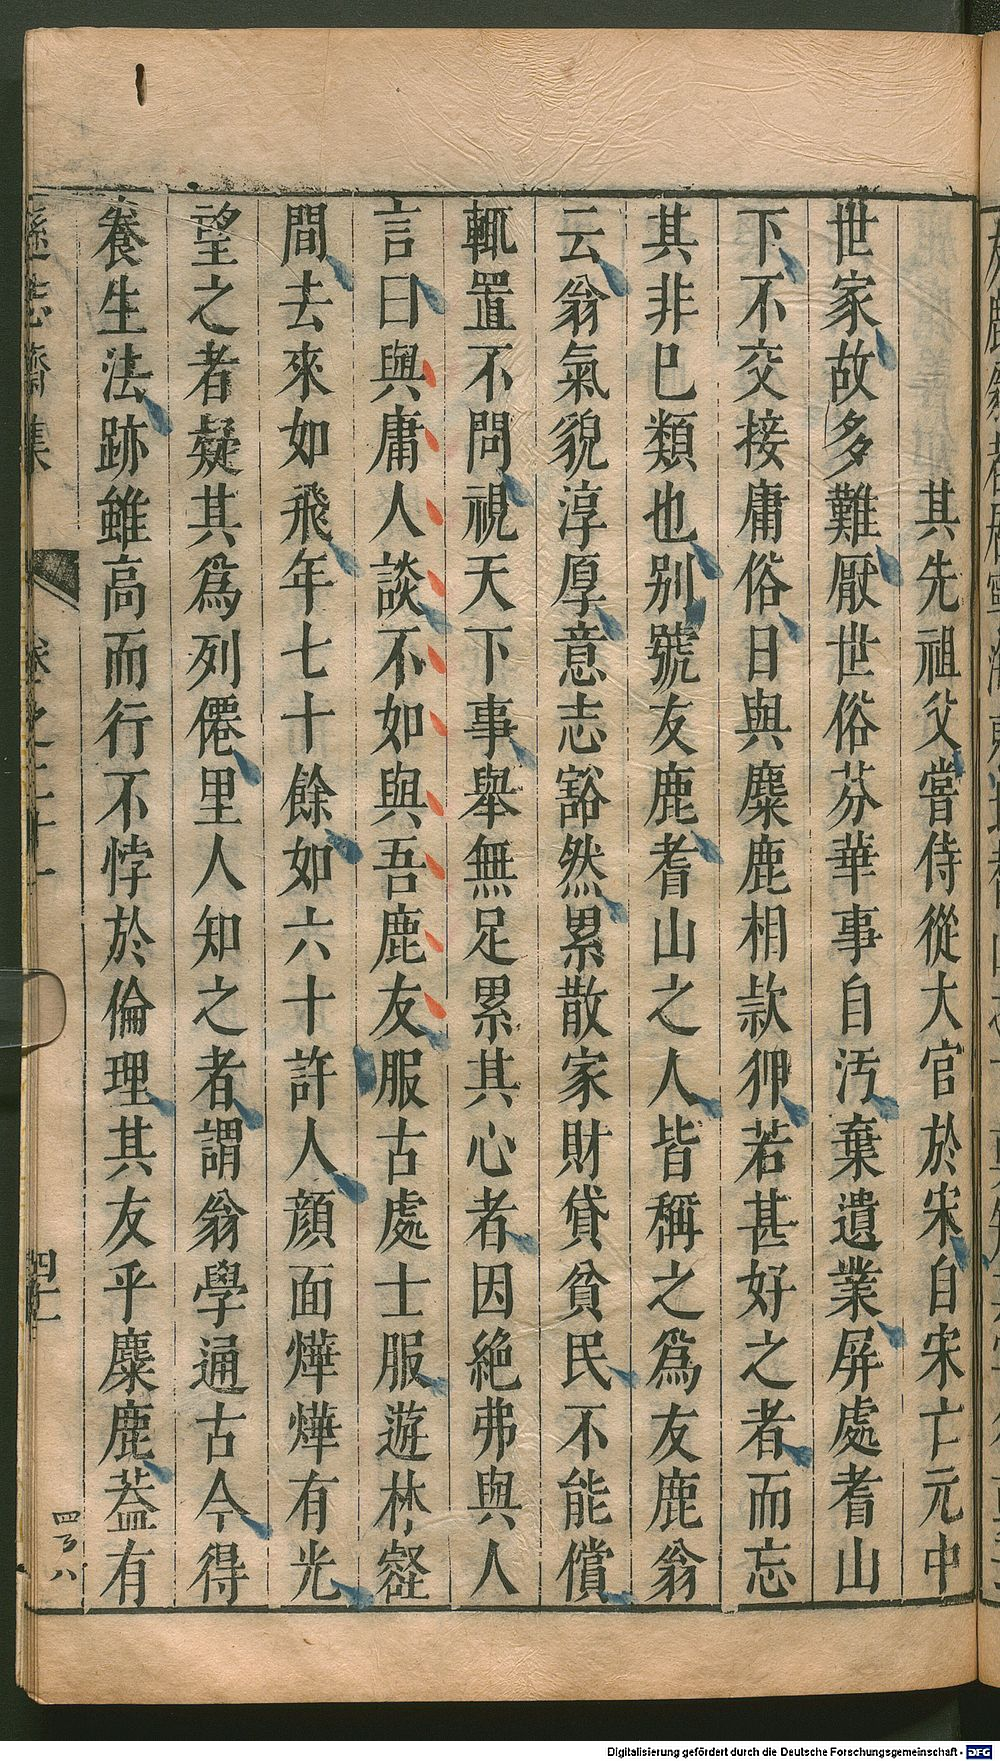 其先祖父嘗侍從大官於宋自宋亡元中
世家故多難厭世俗芬華事自汚棄遺業屏處耆山
下不交接庸俗日與麋鹿相款狎若甚好之者而忘
其非已類也别號友鹿耆山之人皆稱之爲友鹿翁
云翁氣貌淳厚意志豁然累散家財貸貧民不能償
輒置不問視天下事舉無足累其心者因絶弗與人
言曰與庸人談不如與吾鹿友服古處士服遊林壑
間去來如飛年七十餘如六十許人顔面燁燁有光
望之者疑其爲列僊里人知之者謂翁學通古今得
養生法跡雖高而行不悖於倫理其友乎麋鹿葢有
遜志齋集
卷之二十一
四十一
四百八
Digitalisierung gefördert durch die Deutsche Forschungsgemeinschaft - DFG